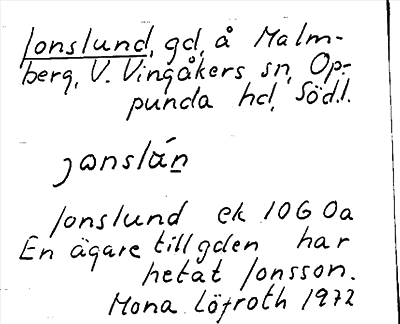 Jonslund, gd, å Malm-
berg, V. Vingåkers sn, Op-
punda hd, Södl.
jɷnslán
Jonslund ek 10G 0a
En ägare till gden har
hetat Jonsson.
Mona Löfroth 1972